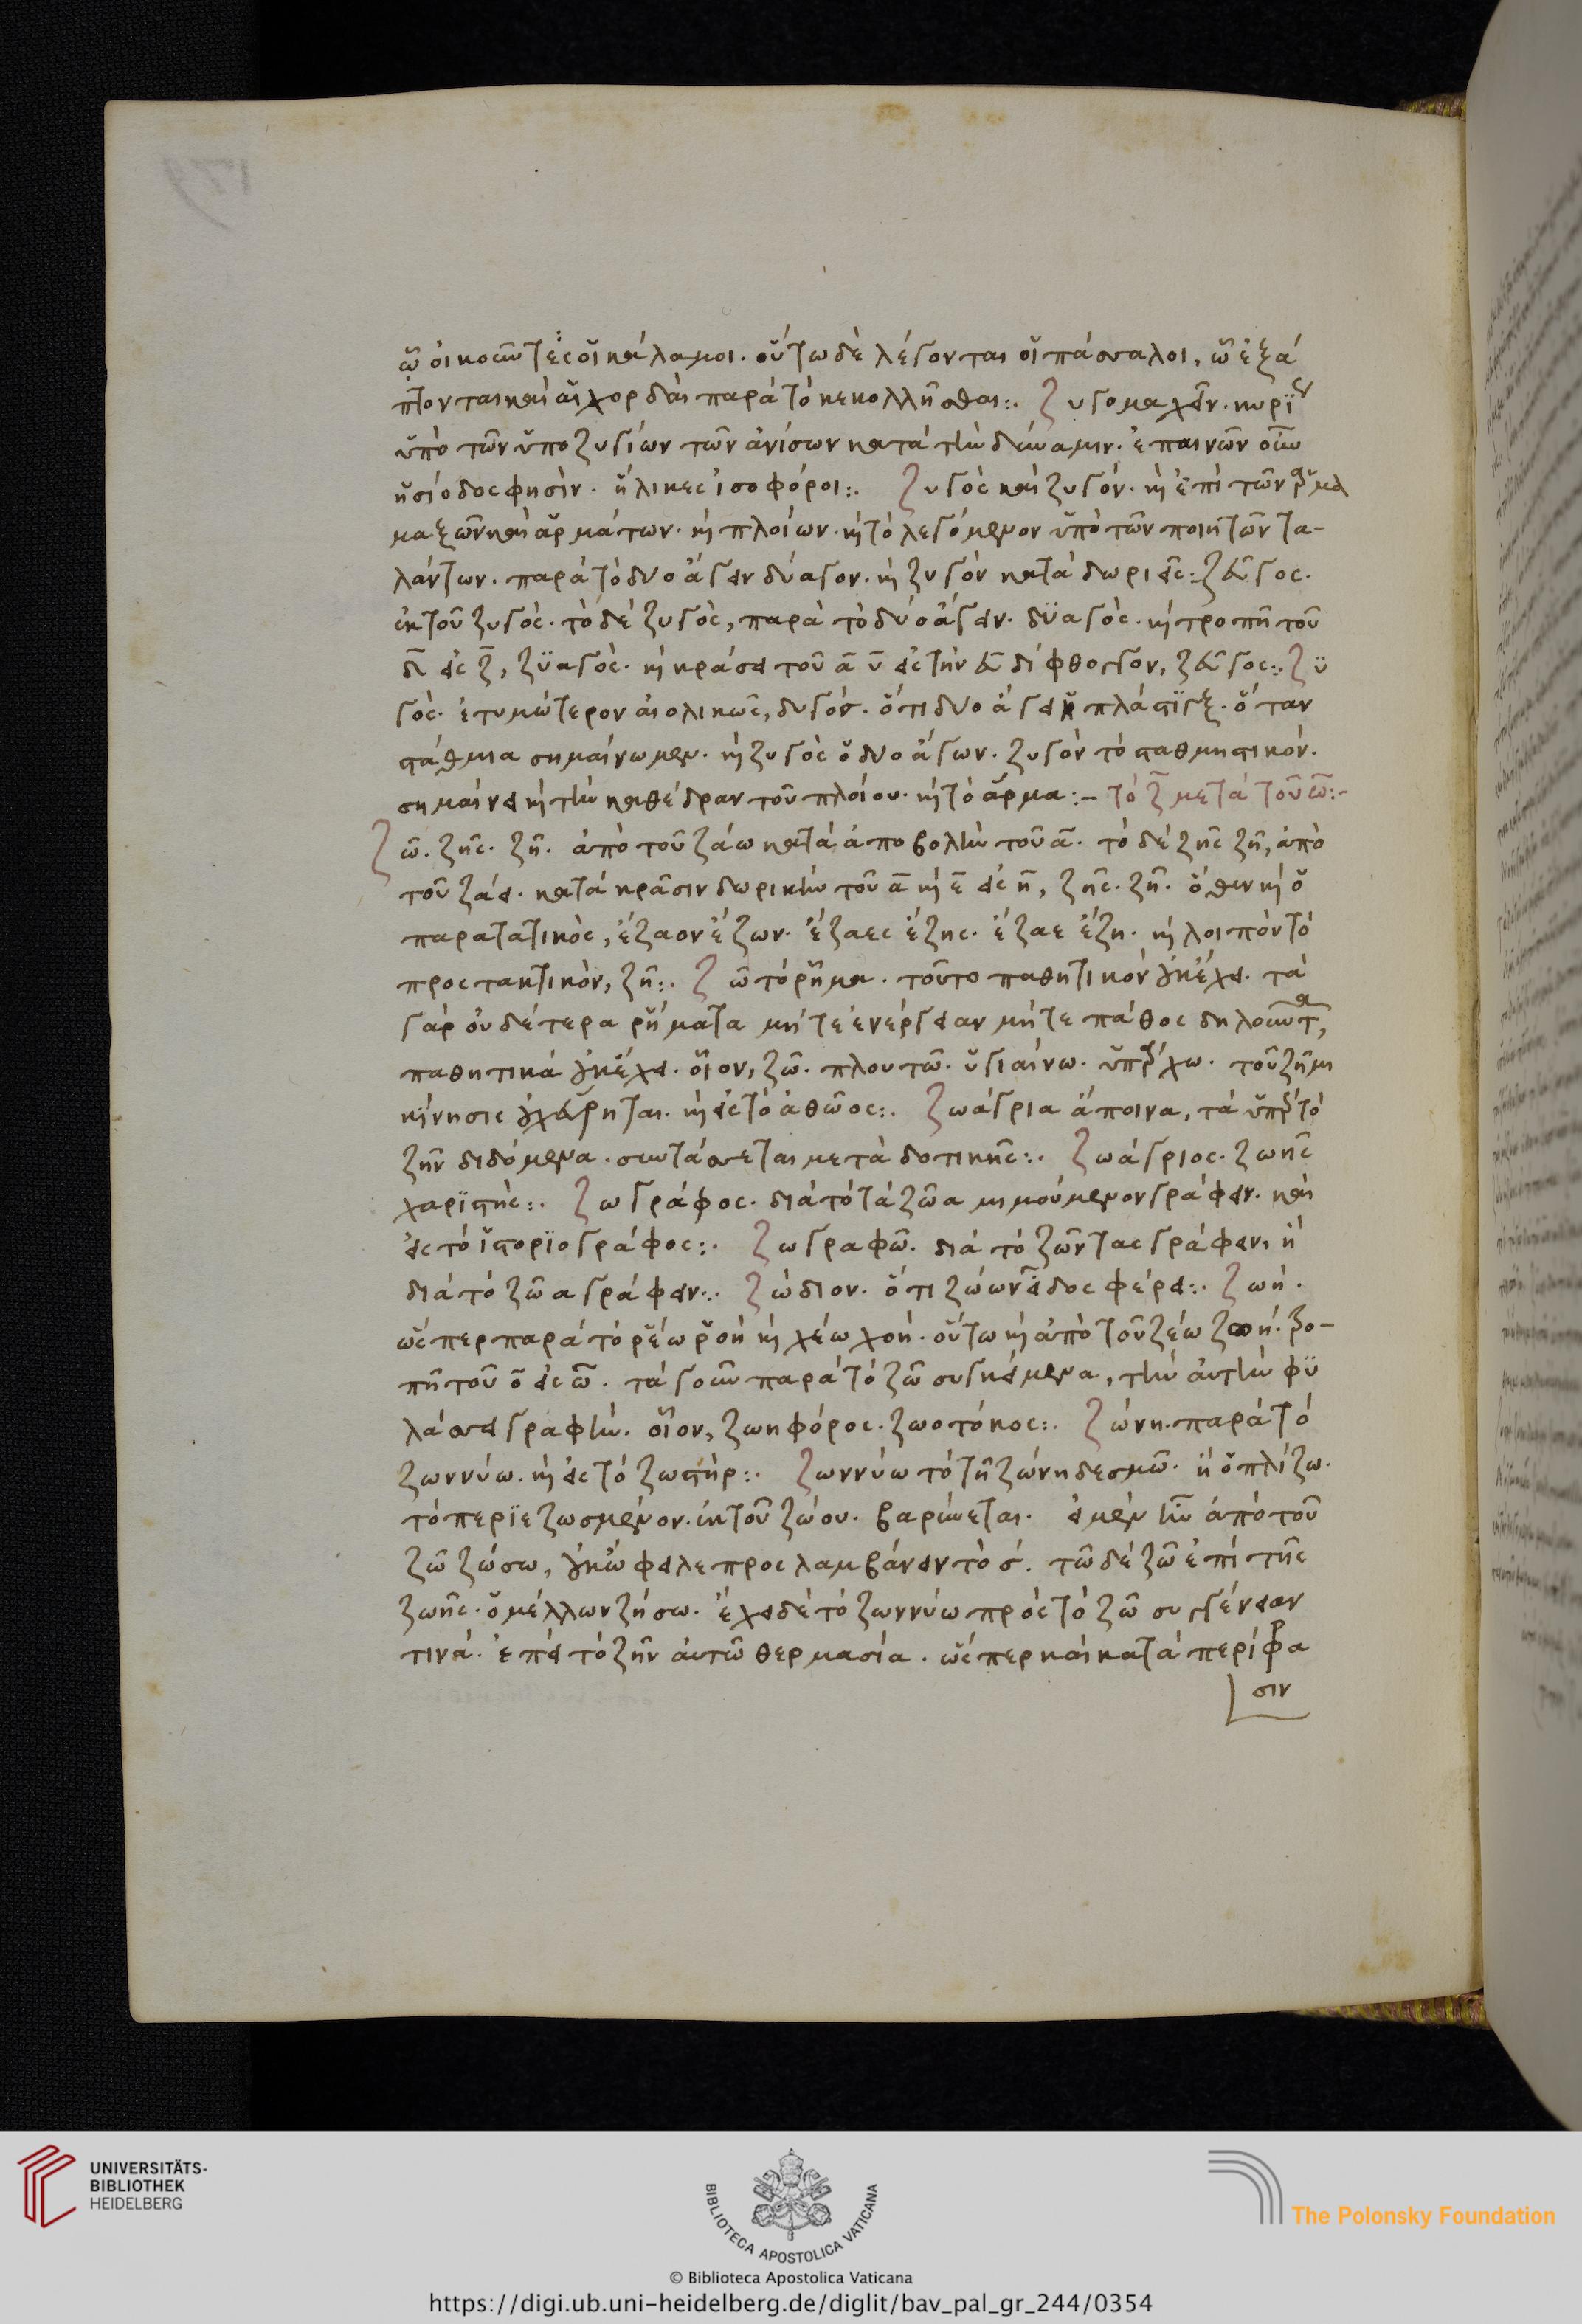 ᾧ οἰκοῦντες οἱ κάλαμοι. οὕτω δὲ λέγονται οἱ πάσσαλοι, ᾧ ἐξά
πτονται καὶ αἱ χορδαὶ παρὰ τὸ κεκολλῆσθαι:. Ζυγομαχεῖν. κυρί
ὑπὸ τῶν ὑποζυγίων τῶν ἀνίσων κατὰ τὴν δύναμιν. ἐπαινῶν οὖν
ἡσίοδος φησὶν. ἥλικες ἰσοφόροι:. Ζυγὸς καὶ ζυγόν. καὶ ἐπὶ τῶν
μαξῶν καὶ ἁρμάτων. καὶ πλοίων. καὶ τὸ λεγόμενον ὑπὸ τῶν ποιητῶν τα-
λάντων. παρὰ τὸ δύο ἄγειν δύαγον. καὶ ζυγὸν κατὰ δωριεῖς:. ζεῦγος.
ἐκ τοῦ ζυγὸς. τὸ δὲ ζυγὸς, παρὰ τὸ δύο ἄγειν. δϋαγὸς. καὶ τροπῇ τοῦ
δ εἰς ζ, ζϋαγὸς. καὶ κράσει τοῦ α υ εἰς τὴν ευ δίφθογγον, ζεῦγος:. Ζϋ
γὸς. ἐτυμώτερον αἰολικῶς, δυγός. ὅτι δύο ἄγει πλάστιγξ. ὅταν
στάθμια σημαίνωμεν. καὶ ζυγὸς ὁ δύο ἄγων. ζυγὸν τὸ σταθμητικόν.
σημαίνει καὶ τὴν καθέδραν τοῦ πλοίου. καὶ τὸ ἅρμα:– τὸ ζ μετὰ τοῦ ω:–
Ζῶ. ζῆς. ζῇ. ἀπὸ τοῦ ζάω κατὰ ἀποβολὴν τοῦ α. τὸ δὲ ζῆς ζῇ, ἀπὸ
τοῦ ζάει. κατὰ κρᾶσιν δωρικὴν τοῦ α καὶ ε εἰς η, ζῆς. ζῇ. ὅθεν καὶ ὁ
παρατατικὸς, ἔζαον ἔζων. ἔζαες ἔζης. ἔζαε ἔζη. καὶ λοιπὸν τὸ
προστακτικὸν, ζῆ:. Ζῶ τὸ ῥῆμα. τοῦτο παθητικὸν οὐκ ἔχει. τὰ
γὰρ οὐδέτερα ῥήματα μήτε ἐνέργειαν μήτε πάθος δηλοῦντα,
παθητικὰ οὐκ ἔχει. οἷον, ζῶ. πλουτῶ. ὑγιαίνω. ὑπάρχω. τοῦ ζῆμι
κίνησις οὐχ εὕρηται. καὶ εἰς τὸ ἀθῶος:. Ζωάγρια ἄποινα, τὰ ὑπὲρ τὸ
ζῆν διδόμενα. συντάσσεται μετὰ δοτικῆς:. Ζωάγριος. ζωῆς
χαρϊστὴς:. Ζωγράφος. διὰ τὸ τὰ ζῶα μιμούμενον γράφειν. καὶ
εἰς τὸ ἱστορϊογράφος:. Ζωγραφῶ. διὰ τὸ ζῶντας γράφειν, ἢ
διὰ τὸ ζῶα γράφειν:. Ζώδιον. ὅτι ζώων εἶδος φέρει:. Ζωή.
ὥσπερ παρὰ τὸ ῥέω ῥοὴ καὶ χέω χοή. οὕτω καὶ ἀπὸ τοῦ ζέω ζωή. ρο-
πῇ τοῦ ο εἰς ω. τὰ γοῦν παρὰ τὸ ζῶ συγκείμενα, τὴν αὐτὴν φϋ
λάσσει γραφήν. οἷον, ζωηφόρος. ζωοτόκος:. Ζώνη. παρὰ τὸ
ζωννύω. καὶ εἰς τὸ ζωστὴρ:. Ζωννύω τὸ τῇ ζώνῃ δεσμῶ. ἢ ὁπλίζω.
τὸ περϊεζωσμένον. ἐκ τοῦ ζώου. βαρύνεται. εἰ μὲν ἦν ἀπὸ τοῦ
ζῶ ζώσω, οὐκ ὤφειλε προσλαμβάνειν τὸ σ. τῶ δὲ ζῶ ἐπὶ τῆς
ζωῆς. ὁ μέλλων ζήσω. ἔχει δὲ τὸ ζωννύω πρὸς τὸ ζῶ συγγένειαν
τινά. ἐπεὶ τὸ ζῆν αὐτῶ θερμασία. ὥσπερ καὶ κατὰ περίφρα
σιν
UNIVERSITÄTS-
BIBLIOTHEK
HEIDELBERG
BIBLIOTECA APOSTOLICA VATICANA
The Polonsky Foundation
© Biblioteca Apostolica Vaticana
https://digi.ub.uni-heidelberg.de/diglit/bav_pal_gr_244/0354